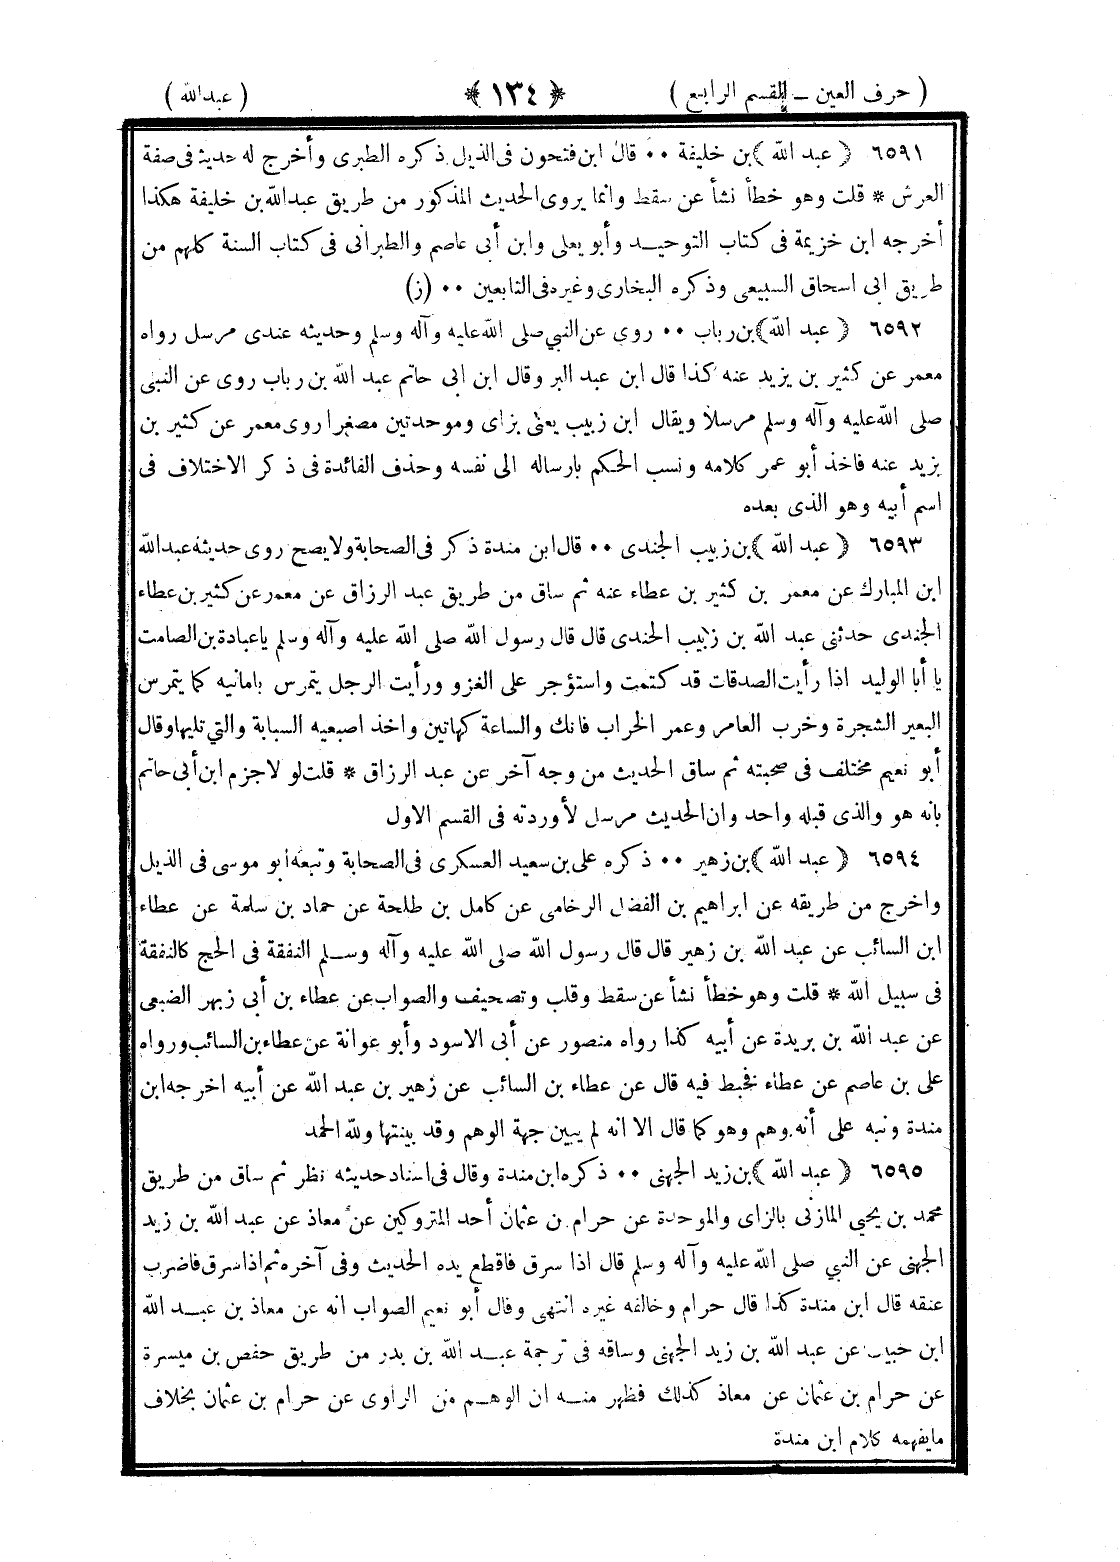 ( حرف العين ــ القسم الرابع ) ﴿ ١٣٤ ﴾ ( عبدالله )
٦٥٩١ ﴿ عبد الله ﴾ بن خليفة ٠٠ قال ابن فتحون فى الذيل ذكره الطبرى وأخرج له حديث فى صفة
العرش * قلت وهو خطأ نشأ عن سقط وانما يروى الحديث المذكور من طريق عبدالله بن خليفة هكذا
أخرجه ابن خزيمة فى كتاب التوحيد وأبو يعلى وابن أبى عاصم والطبرانى فى كتاب السنة كلهم من
طريق ابى اسحاق السبيعى وذكره البخارى وغيره فى التابعين ٠٠ (ز)
٦٥٩٢ ﴿ عبد الله ﴾ بن رباب ٠٠ روى عن النبي صلى الله عليه وآله وسلم وحديثه عندى مرسل رواه
معمر عن كثير بن يزيد عنه كذا قال ابن عبد البر وقال ابن ابى حاتم عبد الله بن رباب روى عن النبى
صلى الله عليه وآله وسلم مرسلا ويقال ابن زبيب يعنى بزاى وموحدتين مصغرا روى معمر عن كثير بن
يزيد عنه فاخذ أبو عمر كلامه ونسب الحكم بارساله الى نفسه وحذف الفائدة فى ذكر الاختلاف فى
اسم أبيه وهو الذى بعده
٦٥٩٣ ﴿ عبد الله ﴾ بن زبيب الجندى ٠٠ قال ابن مندة ذكر فى الصحابة ولا يصح روى حديثه عبدالله
ابن المبارك عن معمر بن كثير بن عطاء عنه ثم ساق من طريق عبد الرزاق عن معمر عن كثير بن عطاء
الجندى حدثنى عبد الله بن زبيب الجندى قال قال رسول الله صلى الله عليه وآله وسلم ياعبادة بن الصامت
يا أبا الوليد اذا رأيت الصدقات قد كتمت واستؤجر على الغزو ورأيت الرجل يتمرس بامانيه كما يتمرس
البعير الشجرة وخرب العامر وعمر الخراب فانك والساعة كهاتين واخذ اصبعيه السبابة والتي تليها وقال
أبو نعيم مختلف فى صحبته ثم ساق الحديث من وجه آخر عن عبد الرزاق * قلت لو لا جزم ابن أبى حاتم
بانه هو والذى قبله واحد وان الحديث مرسل لأوردته فى القسم الاول
٦٥٩٤ ﴿ عبد الله ﴾ بن زهير ٠٠ ذكره على بن سعيد العسكرى فى الصحابة وتبعه ابو موسى فى الذيل
واخرج من طريقه عن ابراهيم بن الفضل الرخامى عن كامل بن طلحة عن حماد بن سلمة عن عطاء
ابن السائب عن عبد الله بن زهير قال قال رسول الله صلى الله عليه وآله وسلم النفقة فى الحج كالنفقة
فى سبيل الله * قلت وهو خطأ نشأ عن سقط وقلب وتصحيف والصواب عن عطاء بن أبى زبهر الضبعى
عن عبد الله بن بريدة عن أبيه كذا رواه منصور عن أبى الاسود وأبو عوانة عن عطاء بن السائب ورواه
على بن عاصم عن عطاء فخبط فيه قال عن عطاء بن السائب عن زهير بن عبد الله عن أبيه اخرجه ابن
مندة ونبه على أنه وهم وهو كما قال الا انه لم يبين جهة الوهم وقد بينتها ولله الحمد
٦٥٩٥ ﴿ عبد الله ﴾ بن زيد الجهنى ٠٠ ذكره ابن مندة وقال فى اسناد حديثه نظر ثم ساق من طريق
محمد بن يحيى المازنى بالزاى والموحدة عن حرام بن عثمان أحد المتروكين عن معاذ عن عبد الله بن زيد
الجهنى عن النبي صلى الله عليه وآله وسلم قال اذا سرق فاقطع يده الحديث وفى آخره ثم اذا سرق فاضرب
عنقه قال ابن مندة كذا قال حرام وخالفه غيره انتهى وقال أبو نعيم الصواب انه عن معاذ بن عبد الله
ابن حبيب عن عبد الله بن زيد الجهنى وساقه فى ترجمة عبد الله بن بدر من طريق حفص بن ميسرة
عن حرام بن عثمان عن معاذ كذلك فظهر منه ان الوهم من الراوى عن حرام بن عثمان بخلاف
مايفهمه كلام ابن مندة